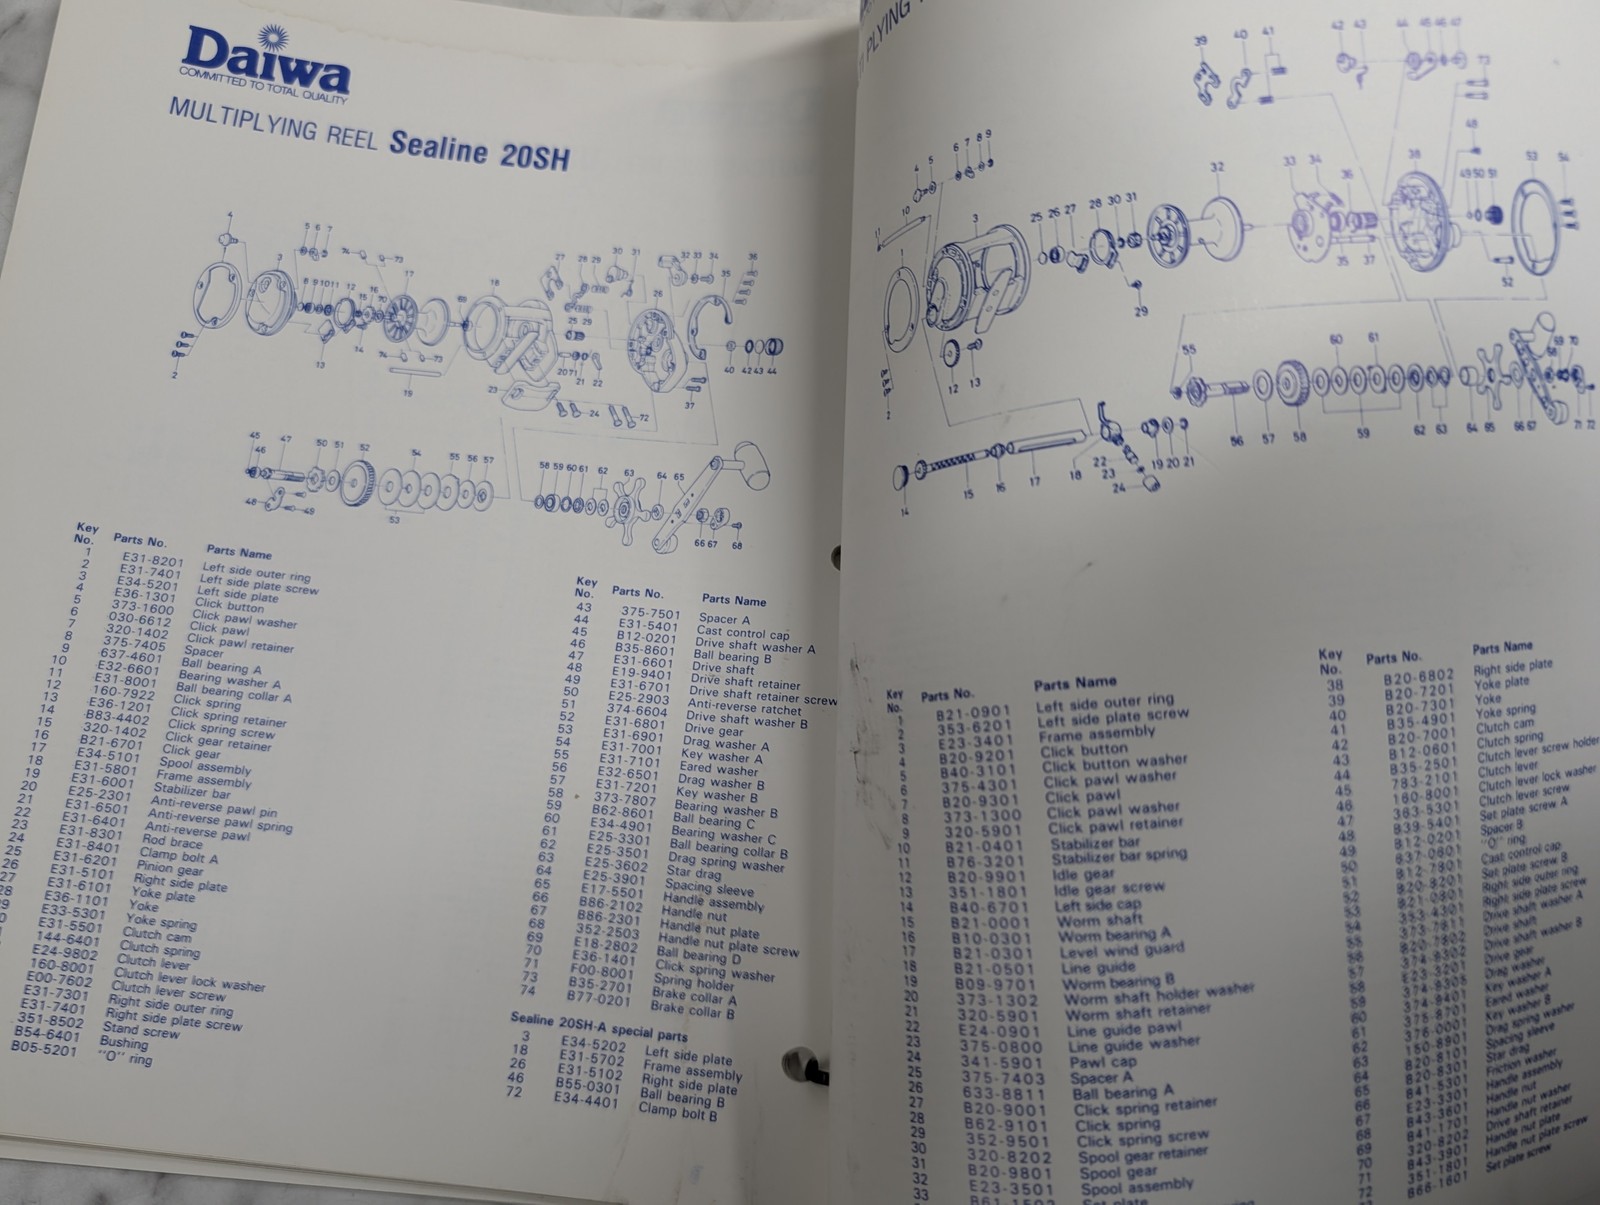 Daiwa
COMMITTED TO TOTAL QUALITY
MULTIPLYING REEL Sealine 20SH
Key No. Parts No. Parts Name
1 E31-8201 Left side outer ring
2 E31-7401 Left side plate screw
3 E34-5201 Left side plate
4 E36-1301 Click button
5 373-1600 Click pawl washer
6 030-6612 Click pawl
7 320-1402 Click pawl retainer
8 375-7405 Spacer
9 637-4601 Ball bearing A
10 E32-6601 Bearing washer A
11 E31-8001 Ball bearing collar A
12 160-7922 Click spring
13 E36-1201 Click spring retainer
14 B83-4402 Click spring screw
15 320-1402 Click gear retainer
16 B21-6701 Click gear
17 E34-5101 Spool assembly
18 E31-5801 Frame assembly
19 E31-6001 Stabilizer bar
20 E25-2301 Anti-reverse pawl pin
21 E31-6501 Anti-reverse pawl spring
22 E31-6401 Anti-reverse pawl
23 E31-8301 Rod brace
24 E31-8401 Clamp bolt A
25 E31-6201 Pinion gear
26 E31-5101 Right side plate
27 E31-6101 Yoke plate
28 E36-1101 Yoke
29 E33-5301 Yoke spring
E31-5501 Clutch cam
144-6401 Clutch spring
E24-9802 Clutch lever
160-8001 Clutch lever lock washer
E00-7602 Clutch lever screw
E31-7301 Right side outer ring
E31-7401 Right side plate screw
351-8502 Stand screw
B54-6401 Bushing
B05-5201 "O" ring
Key No. Parts No. Parts Name
43 375-7501 Spacer A
44 E31-5401 Cast control cap
45 B12-0201 Drive shaft washer A
46 B35-8601 Ball bearing B
47 E31-6601 Drive shaft
48 E19-9401 Drive shaft retainer
49 E31-6701 Drive shaft retainer screw
50 E25-2903 Anti-reverse ratchet
51 374-6604 Drive shaft washer B
52 E31-6801 Drive gear
53 E31-6901 Drag washer A
54 E31-7001 Key washer A
55 E31-7101 Eared washer
56 E32-6501 Drag washer B
57 E31-7201 Key washer B
58 373-7807 Bearing washer B
59 B62-8601 Ball bearing C
60 E34-4901 Bearing washer C
61 E25-3301 Ball bearing collar B
62 E25-3501 Drag spring washer
63 E25-3602 Star drag
64 E25-3901 Spacing sleeve
65 E17-5501 Handle assembly
66 B86-2102 Handle nut
67 B86-2301 Handle nut plate
68 352-2503 Handle nut plate screw
69 E18-2802 Ball bearing D
70 E36-1401 Click spring washer
71 F00-8001 Spring holder
73 B35-2701 Brake collar A
74 B77-0201 Brake collar B
Sealine 20SH-A special parts
3 E34-5202 Left side plate
18 E31-5702 Frame assembly
26 E31-5102 Right side plate
46 B55-0301 Ball bearing B
72 E34-4401 Clamp bolt B
PLYING
Key No. Parts No. Parts Name
1 B21-0901 Left side outer ring
2 353-6201 Left side plate screw
3 E23-3401 Frame assembly
4 B20-9201 Click button
5 B40-3101 Click button washer
6 375-4301 Click pawl washer
7 B20-9301 Click pawl
8 373-1300 Click pawl washer
9 320-5901 Click pawl retainer
10 B21-0401 Stabilizer bar
11 B76-3201 Stabilizer bar spring
12 B20-9901 Idle gear
13 351-1801 Idle gear screw
14 B40-6701 Left side cap
15 B21-0001 Worm shaft
16 B10-0301 Worm bearing A
17 B21-0301 Level wind guard
18 B21-0501 Line guide
19 B09-9701 Worm bearing B
20 373-1302 Worm shaft holder washer
21 320-5901 Worm shaft retainer
22 E24-0901 Line guide pawl
23 375-0800 Line guide washer
24 341-5901 Pawl cap
25 375-7403 Spacer A
26 633-8811 Ball bearing A
27 B20-9001 Click spring retainer
28 B62-9101 Click spring
29 352-9501 Click spring screw
30 320-8202 Spool gear retainer
31 B20-9801 Spool gear
32 E23-3501 Spool assembly
33
Key No. Parts No. Parts Name
38 B20-6802 Right side plate
39 B20-7201 Yoke plate
40 B20-7301 Yoke
41 B35-4901 Yoke spring
42 B20-7001 Clutch cam
43 B12-0601 Clutch spring
44 B35-2501 Clutch lever screw holder
45 783-2101 Clutch lever
46 160-8001 Clutch lever lock washer
47 363-5301 Clutch lever screw
48 B39-5401 Set plate screw A
49 B12-0201 Spacer B
50 637-0801 "O" ring
51 B12-7801 Cast control cap
52 B20-8201 Set plate screw B
53 B21-0801 Right side outer ring
54 353-4301 Right side plate screw
55 Drive shaft washer A
56 Drive shaft
57 Drive shaft washer B
58 E23-3201 Drive gear
59 Drag washer
60 374-9401 Key washer A
61 375-8701 Eared washer
62 376-0001 Key washer B
63 150-8901 Drag spring washer
64 B20-8101 Spacing sleeve
65 B20-8301 Star drag
66 B41-5301 Friction washer
67 E23-3301 Handle assembly
68 B43-3601 Handle nut
69 B41-1701 Handle nut washer
70 320-8202 Drive shaft retainer
71 B43-3901 Handle nut plate
72 351-1801 Handle nut plate screw
B66-1601 Set plate screw